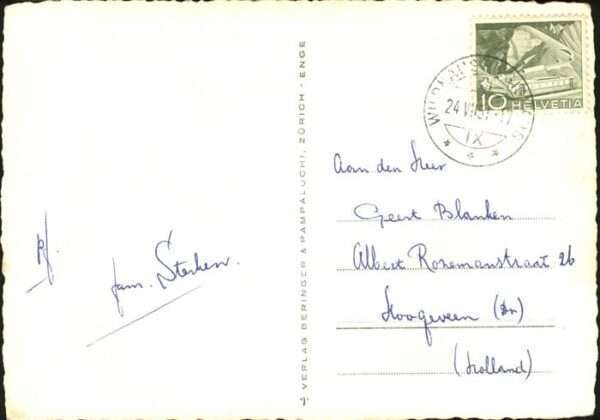 pf.
fam. Sterken.
VERLAG BERINGER & PAMPALUCHI, ZÜRICH - ENGE
10 HELVETIA
24 VI
IX
Aan den Heer
Geert Blanken
Albert Rozemanstraat 26
Hoogeveen (Dr)
(Holland)